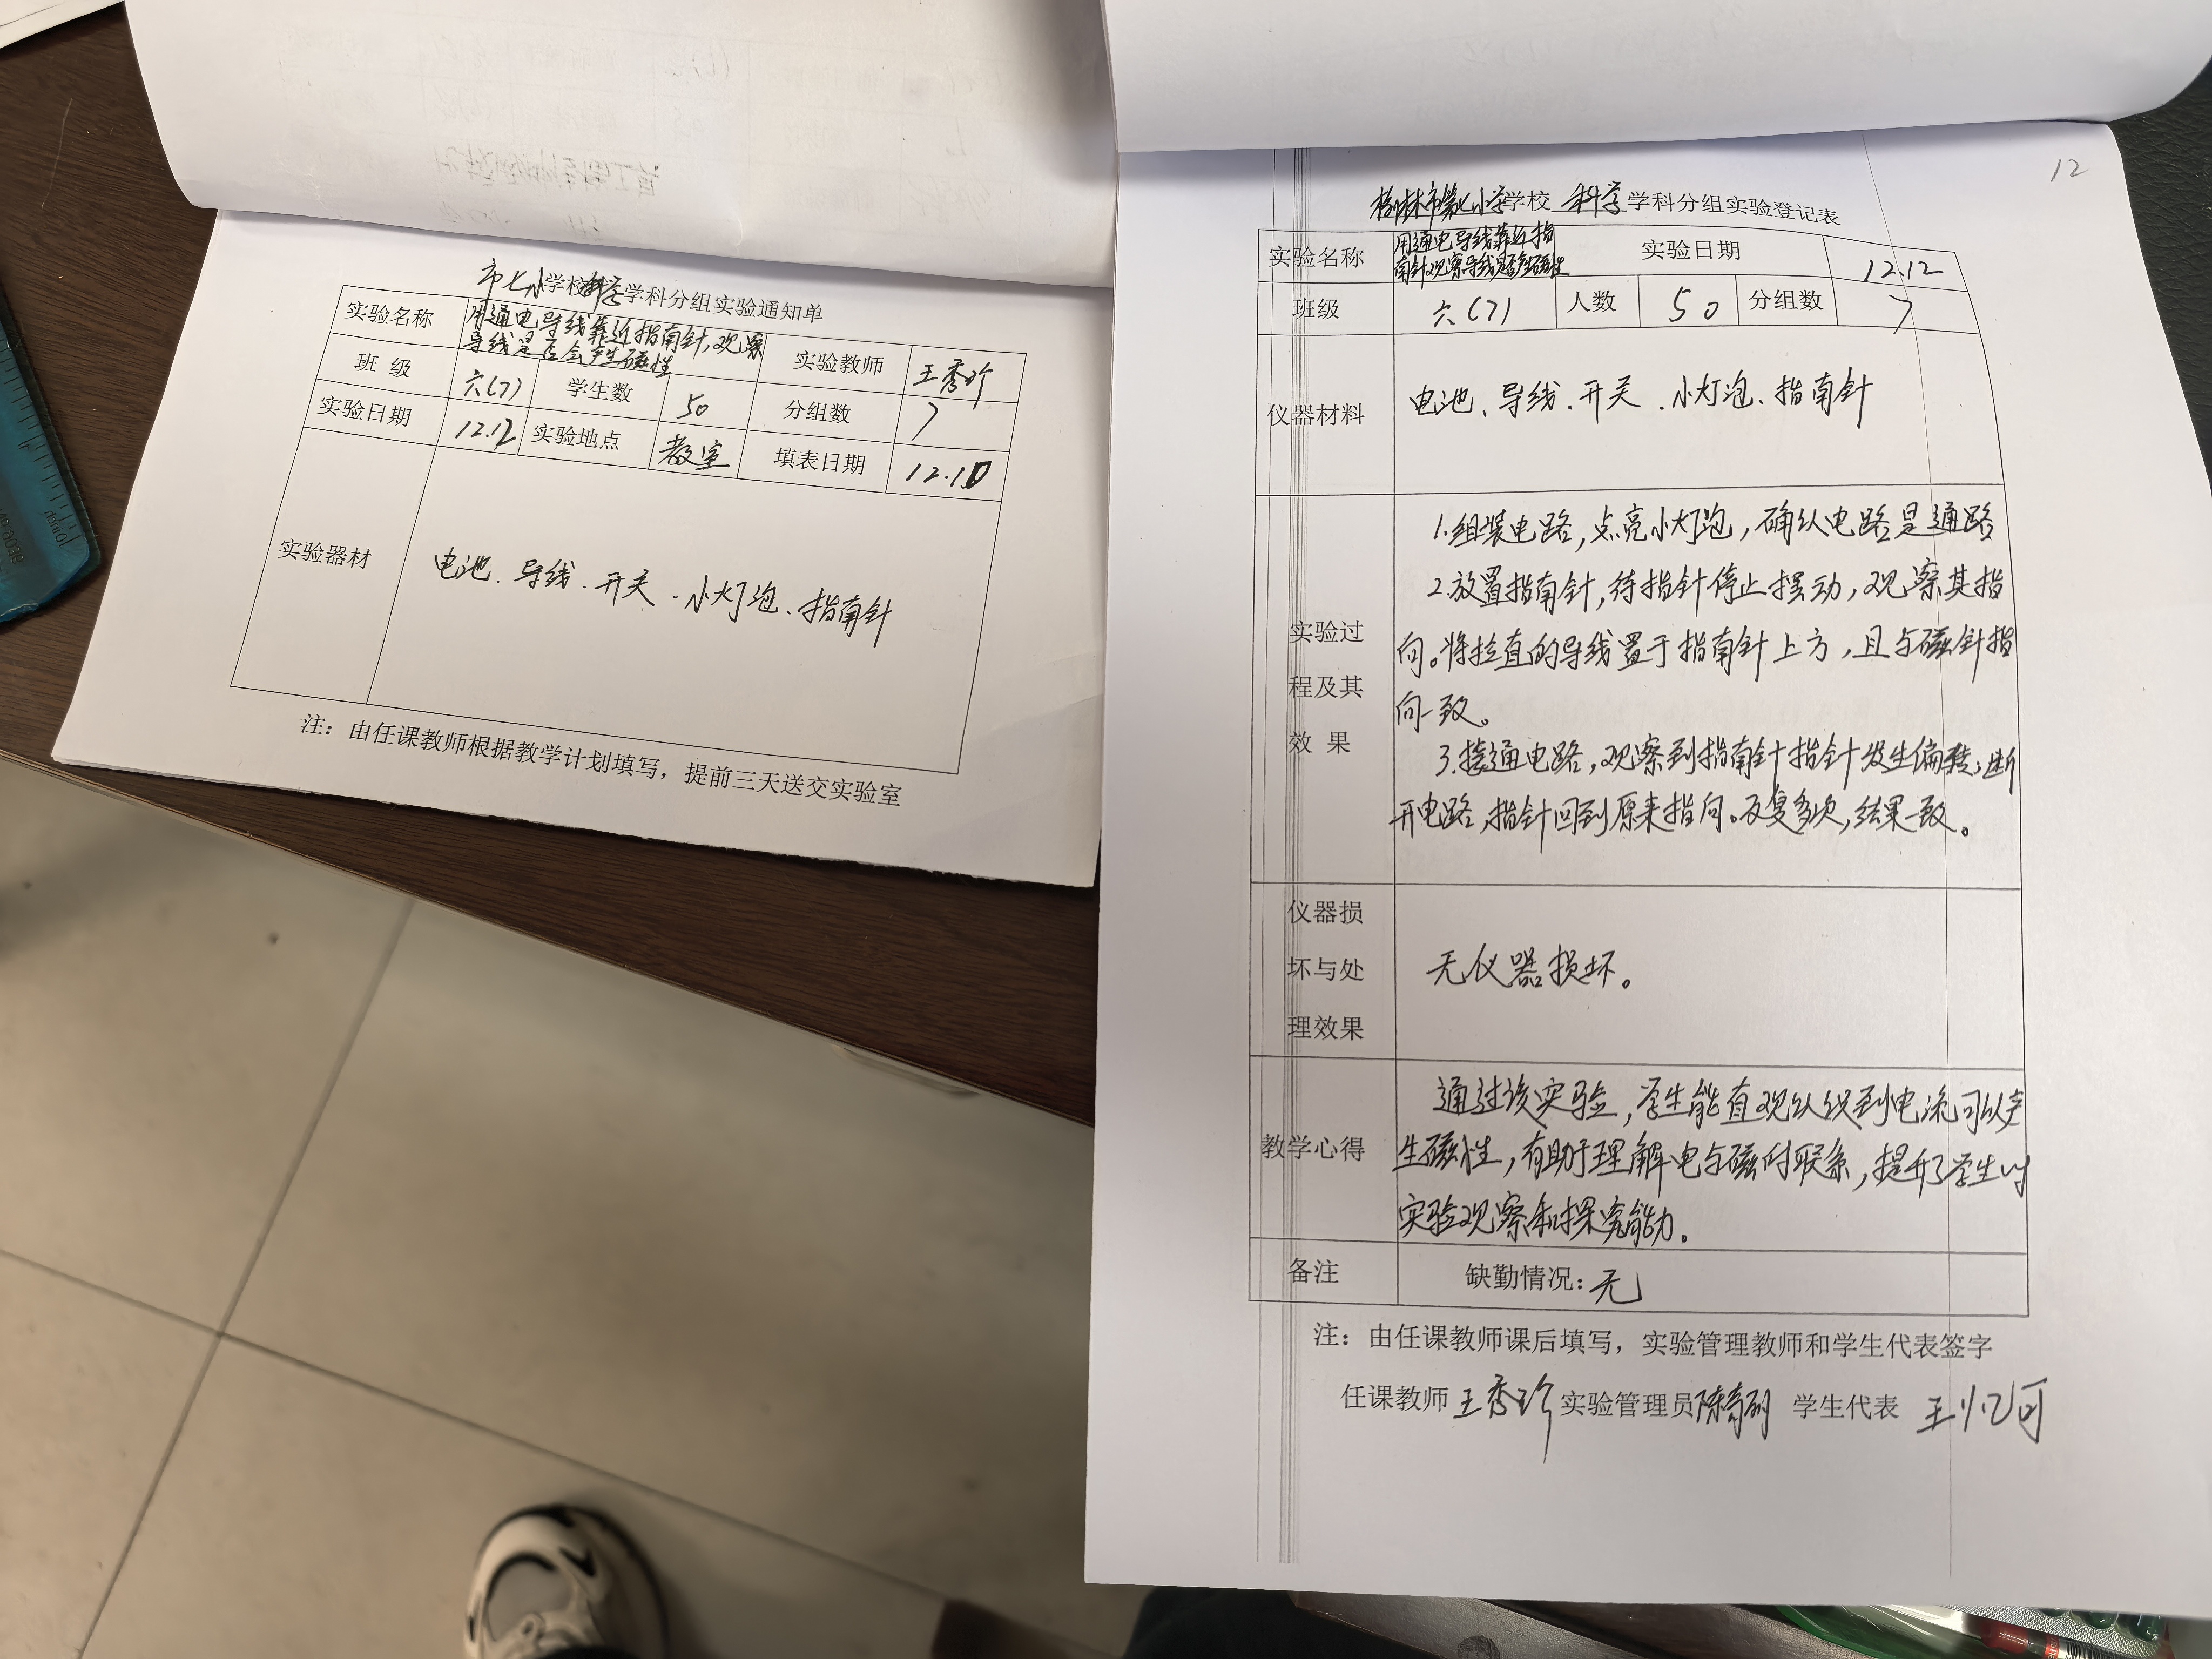 市七小学校科学学科分组实验通知单
实验名称 用通电导线靠近指南针,观察导线是否会产生磁性 实验教师 王秀珍
班 级 六(7) 学生数 50 分组数 7
实验日期 12.12 实验地点 教室 填表日期 12.10
实验器材 电池、导线、开关、小灯泡、指南针
注：由任课教师根据教学计划填写，提前三天送交实验室
12
榆林市第七小学学校 科学 学科分组实验登记表
实验名称 用通电导线靠近指南针观察导线是否产生磁性 实验日期 12.12
班级 六(7) 人数 50 分组数 7
仪器材料 电池、导线、开关、小灯泡、指南针
实验过程及其效果
1.组装电路,点亮小灯泡,确认电路是通路
2.放置指南针,待指针停止摆动,观察其指
向。将拉直的导线置于指南针上方,且与磁针指
向一致。
3.接通电路,观察到指南针指针发生偏转;断
开电路,指针回到原来指向。反复多次,结果一致。
仪器损坏与处理效果 无仪器损坏。
教学心得
通过该实验,学生能直观认识到电流可以产
生磁性,有助于理解电与磁的联系,提升了学生的
实验观察和探究能力。
备注 缺勤情况：无
注：由任课教师课后填写，实验管理教师和学生代表签字
任课教师 王秀珍 实验管理员 学生代表 王忆可